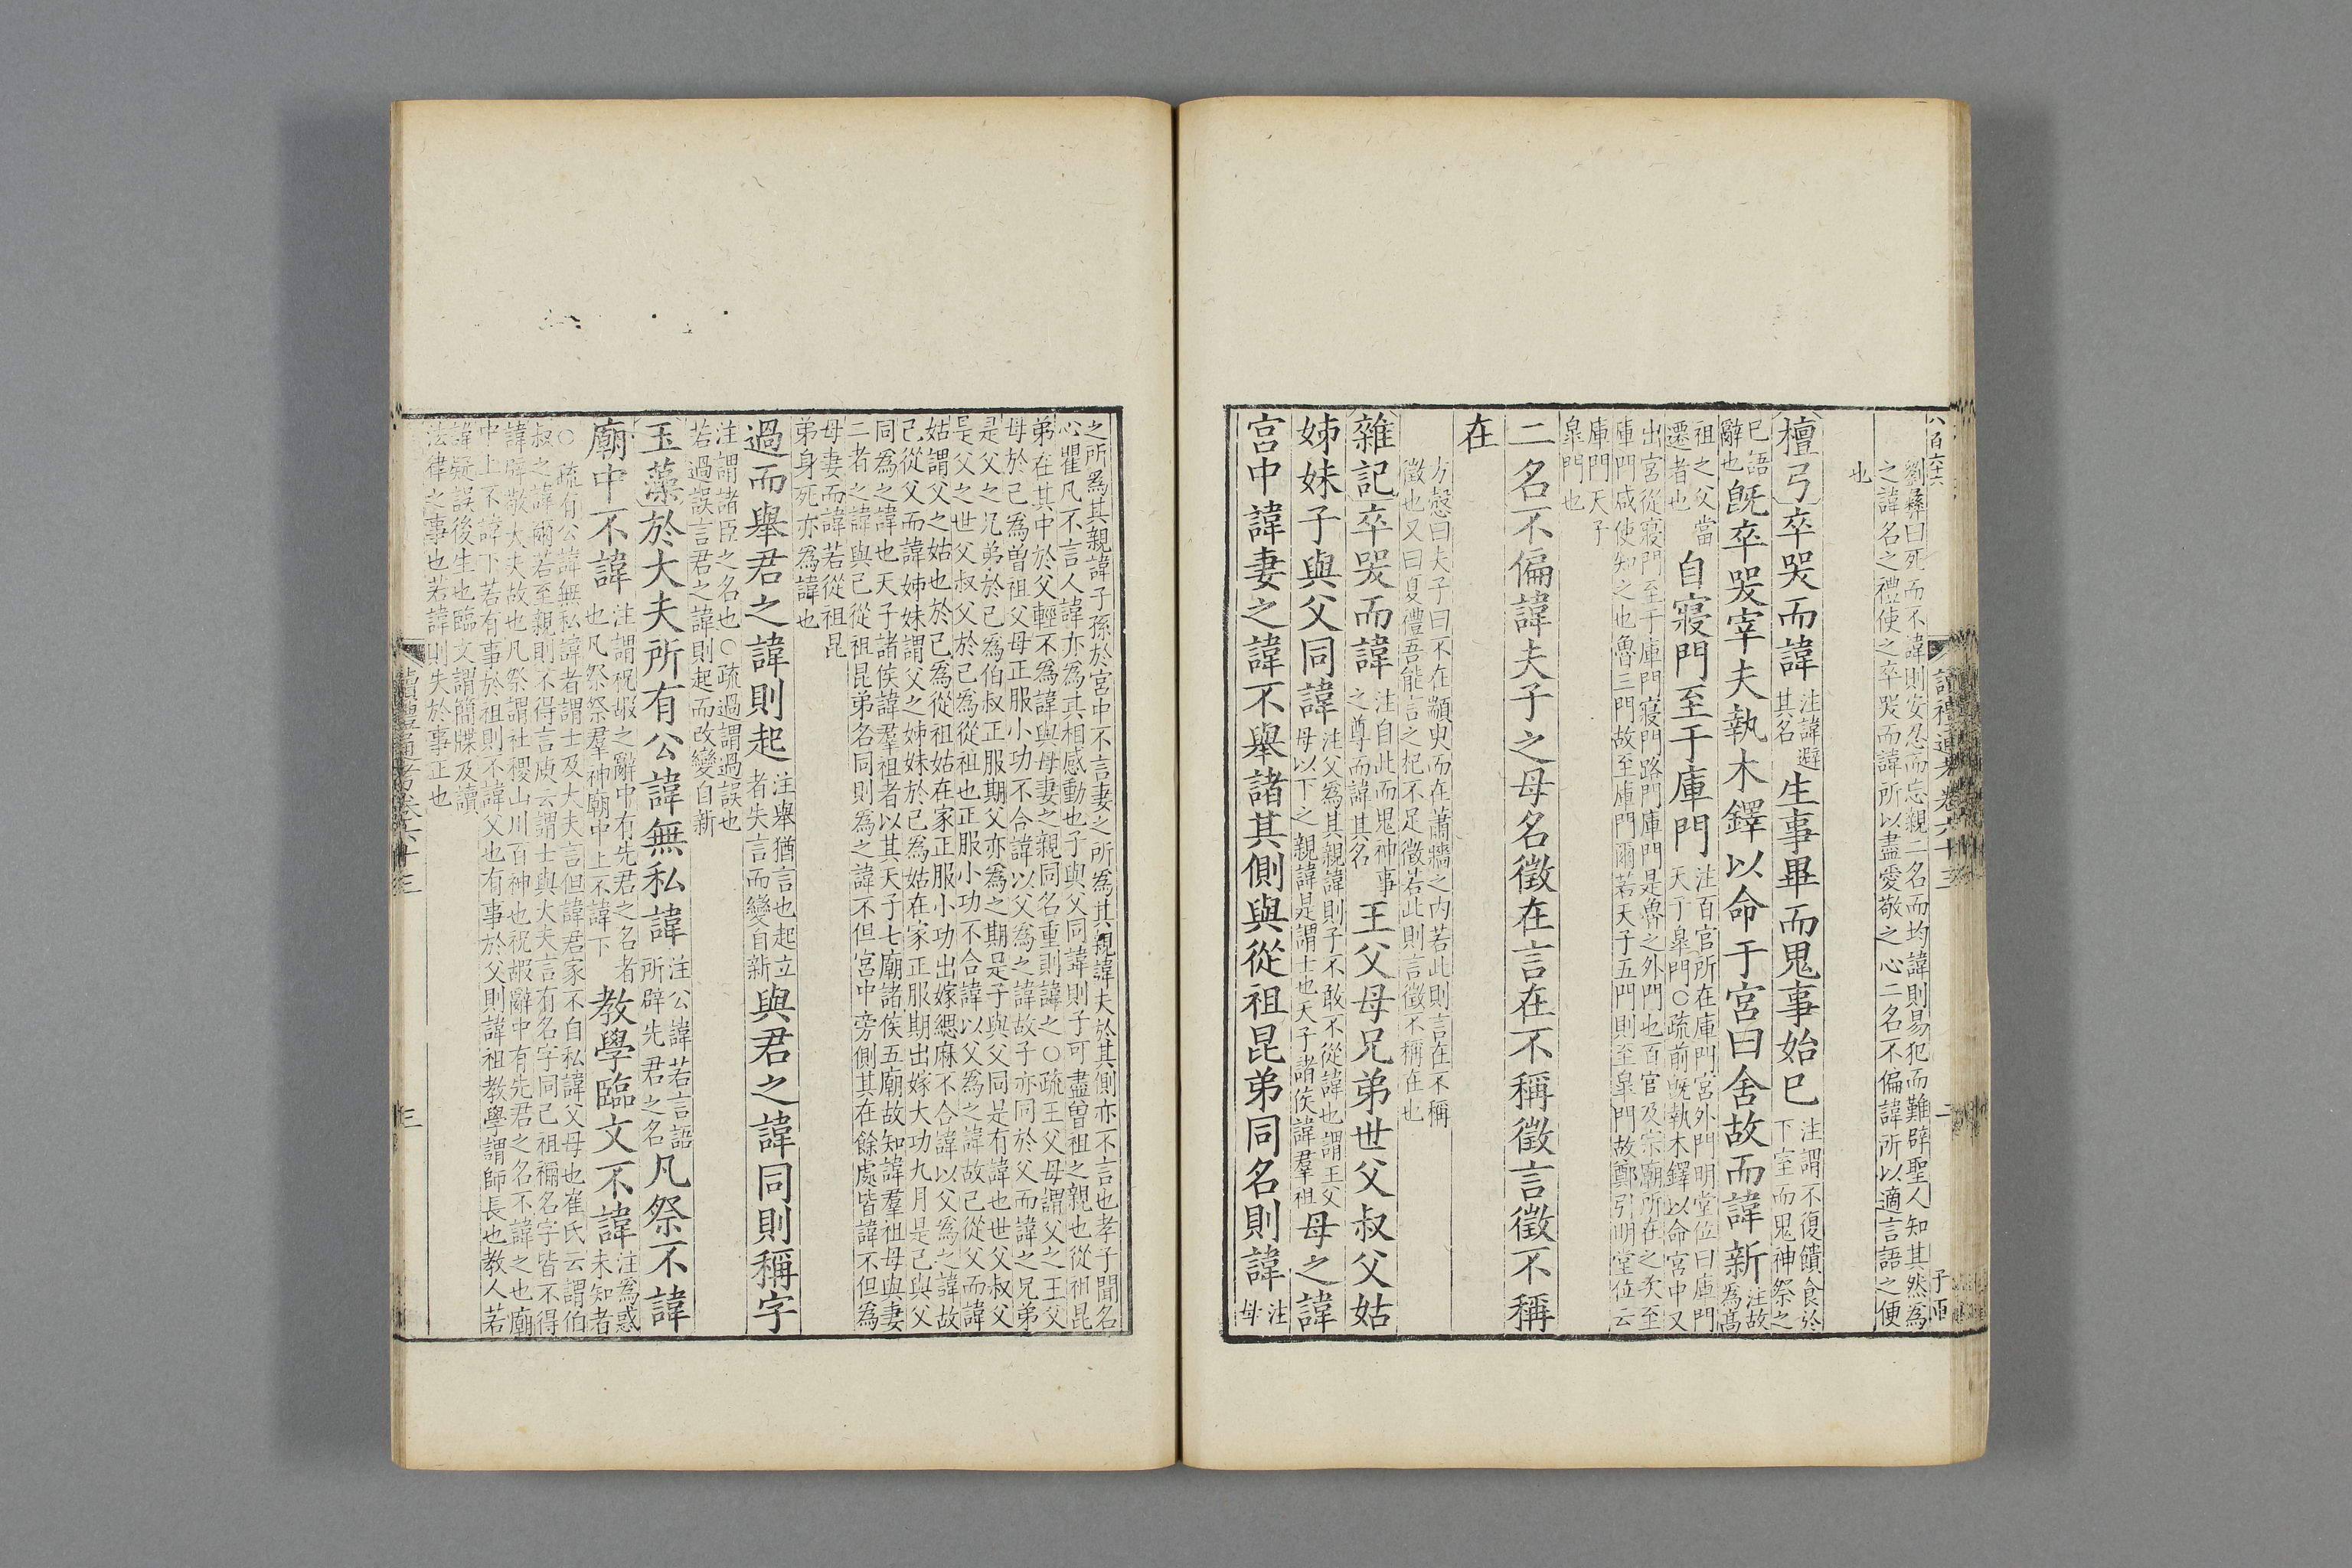 八百六十六
讀禮通考卷六十三
二
劉彝曰死而不諱則安忍而忘親二名而均諱則易犯而難辟聖人知其然為
之諱名之禮使之卒哭而諱所以盡愛敬之心二名不偏諱所以適言語之便
也
檀弓卒哭而諱注諱避其名生事畢而鬼事始已注謂不復饋食於下室而鬼神祭之
已語辭也旣卒哭宰夫執木鐸以命于宮曰舍故而諱新注故為高
祖之父當遷者也自寢門至于庫門注百官所在庫門宮外門明堂位曰庫門天子臯門○疏前旣執木鐸以命宮中又
出宮從寢門至于庫門寢門路門庫門是魯之外門也百官及宗廟所在之次至
庫門咸使知之也魯三門故至庫門爾若天子五門則至臯門故鄭引明堂位云
庫門天子
臯門也
二名不偏諱夫子之母名徵在言在不稱徵言徵不稱
在
方愨曰夫子曰不在顓臾而在蕭牆之內若此則言在不稱
徵也又曰夏禮吾能言之杞不足徵若此則言徵不稱在也
雜記卒哭而諱注自此而鬼神事之尊而諱其名王父母兄弟世父叔父姑
姊妹子與父同諱注父為其親諱則子不敢不從諱也謂王父母以下之親諱是謂士也天子諸侯諱羣祖母之諱
宮中諱妻之諱不舉諸其側與從祖昆弟同名則諱注母
之所為其親諱子孫於宮中不言妻之所為其親諱夫於其側亦不言也孝子聞名
心瞿凡不言人諱亦為其相感動也子與父同諱則子可盡曾祖之親也從祖昆
弟在其中於父輕不為諱與母妻之親同名重則諱之○疏王父母謂父之王父
母於己為曾祖父母正服小功不合諱以父為之諱故子亦同於父而諱之兄弟
是父之兄弟於己為伯叔正服期父亦為之期是子與父同是有諱也世父叔父
是父之世父叔父於己為從祖也正服小功不合諱以父為之諱故己從父而諱
姑謂父之姑也於己為從祖姑在家正服小功出嫁緦麻不合諱以父為之諱故
己從父而諱姊妹謂父之姊妹於己為姑在家正服期出嫁大功九月是己與父
同為之諱也天子諸侯諱羣祖者以其天子七廟諸侯五廟故知諱羣祖母與妻
二者之諱與已從祖昆弟名同則為之諱不但宮中旁側其在餘處皆諱不但為
母妻而諱若從祖昆
弟身死亦為諱也
過而舉君之諱則起注舉猶言也起立者失言而變自新與君之諱同則稱字
注謂諸臣之名也○疏過謂過誤也
若過誤言君之諱則起而改變自新
玉藻於大夫所有公諱無私諱注公諱若言語所辟先君之名凡祭不諱
廟中不諱注謂祝嘏之辭中有先君之名者也凡祭祭羣神廟中上不諱下教學臨文不諱注為惑未知者
○疏有公諱無私諱者謂士及大夫言但諱君家不自私諱父母也崔氏云謂伯
叔之諱爾若至親則不得言庾云謂士與大夫言有名字同己祖禰名字皆不得
諱辟敬大夫故也凡祭謂社稷山川百神也祝嘏辭中有先君之名不諱之也廟
中上不諱下若有事於祖則不諱父也有事於父則諱祖教學謂師長也教人若
諱疑誤後生也臨文謂簡牒及讀
法律之事也若諱則失於事正也
讀禮通考卷六十三
三